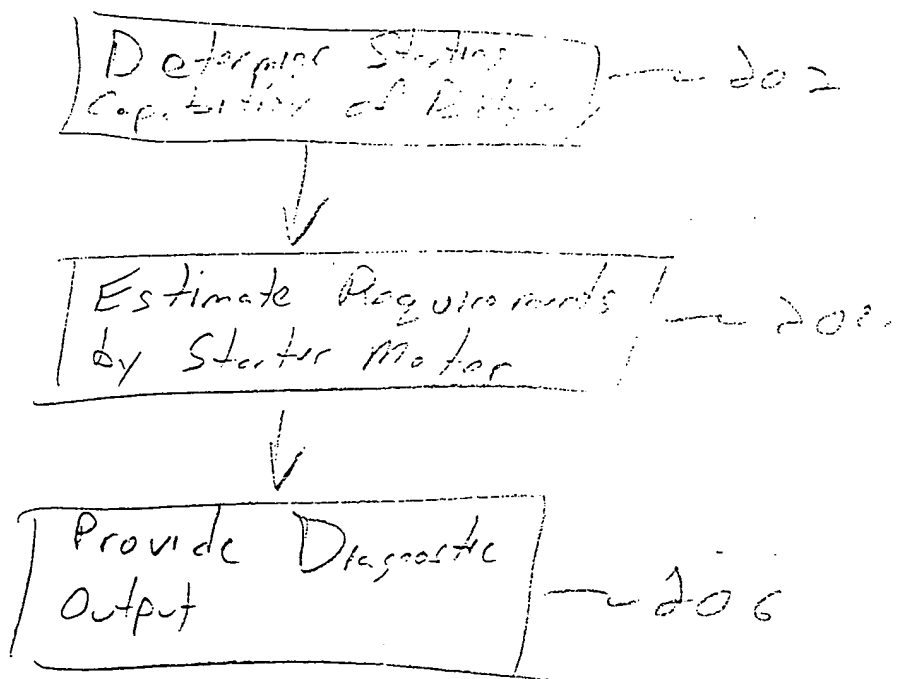 Determine Starting
Capabilities of Battery
202
Estimate Requirements
by Starter Motor
Provide Diagnostic
Output
206